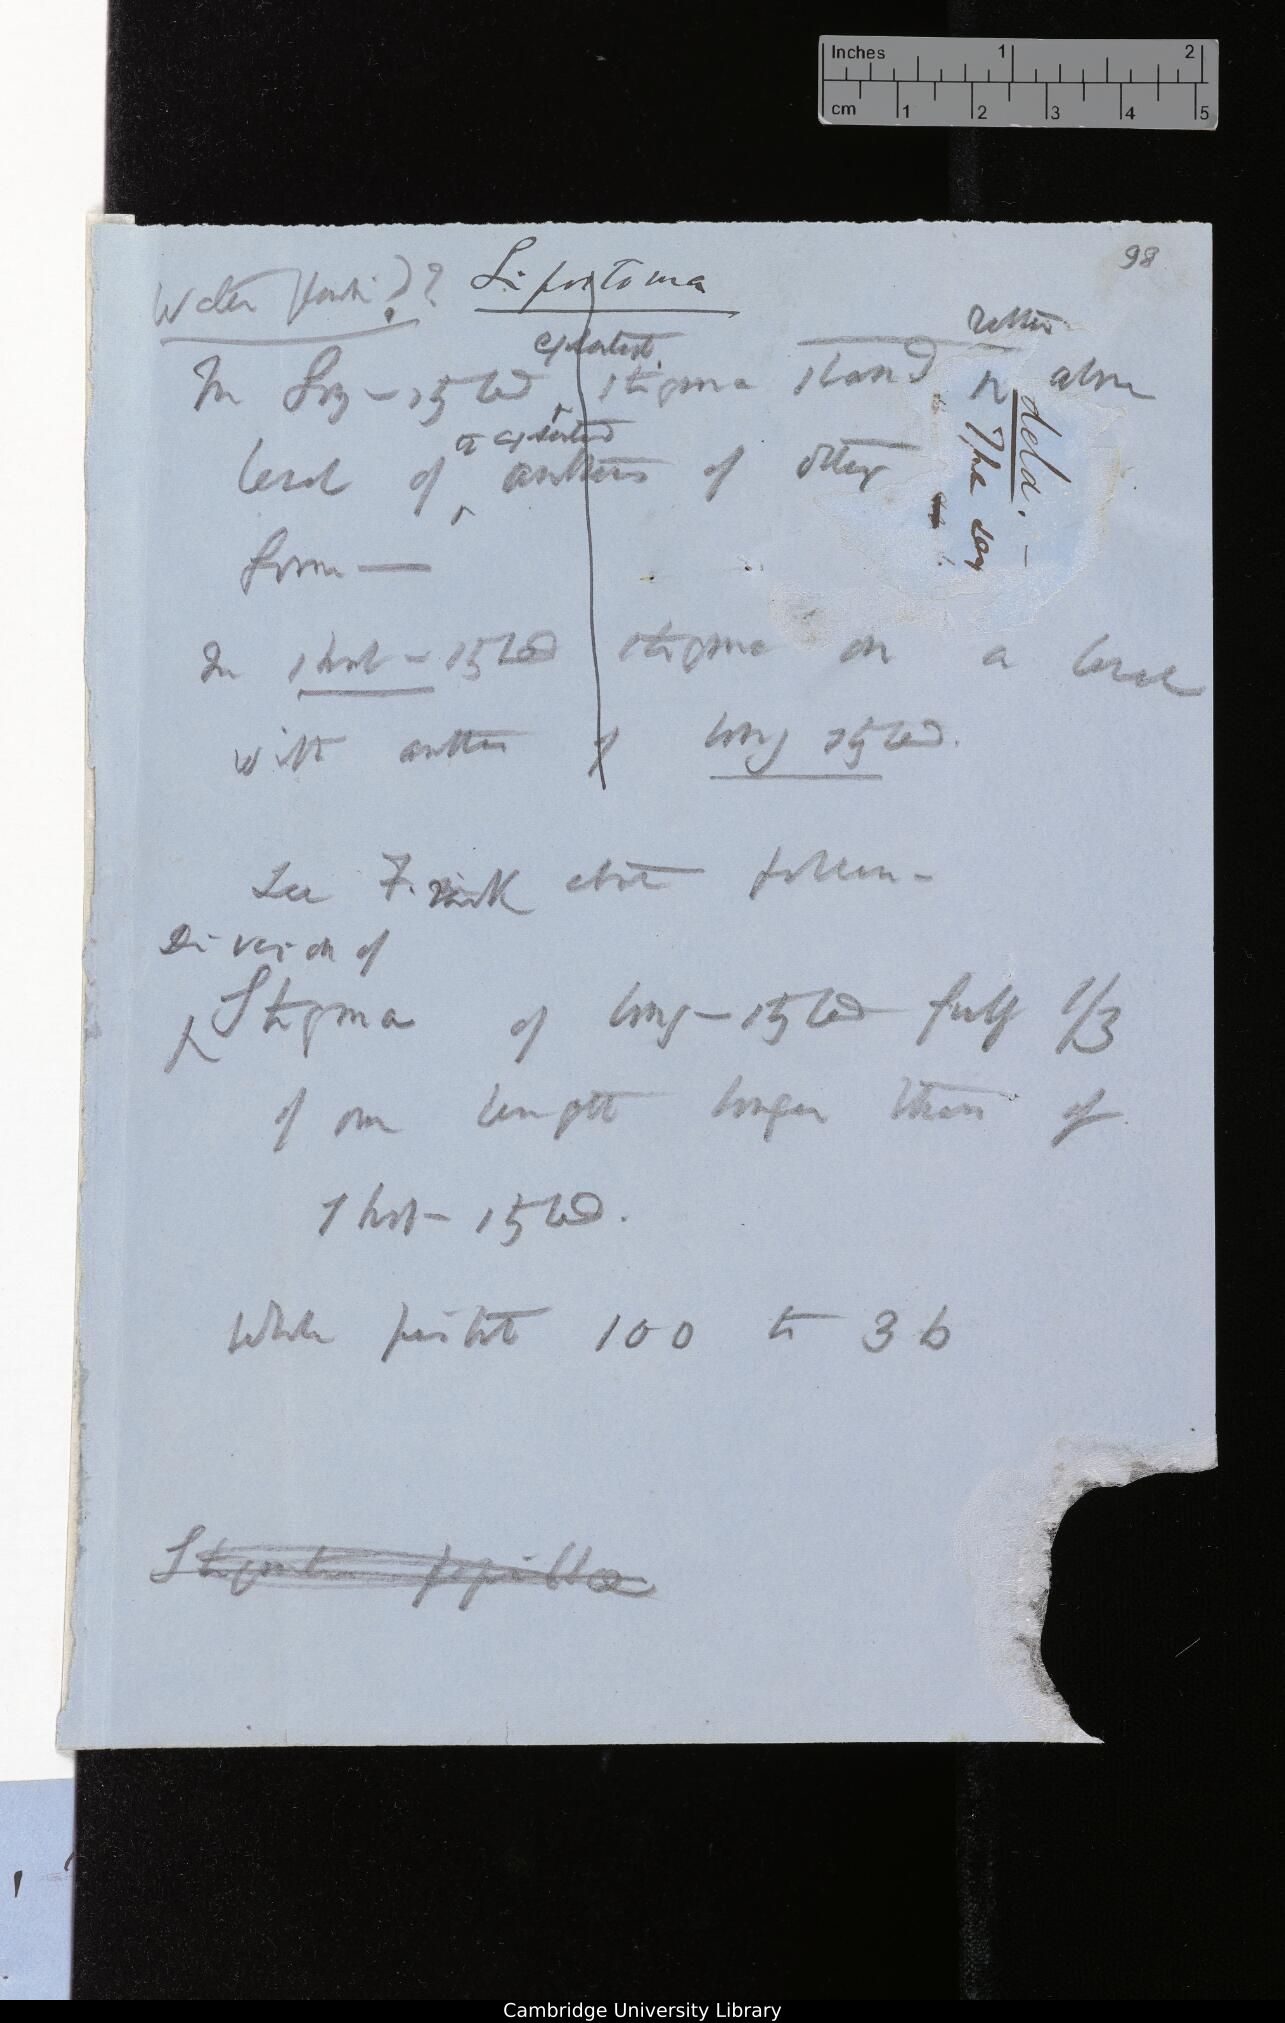 Inches 1 2
cm 1 2 3 4 5
98
Water plant? ? Lipostoma
rather
exserted
In long-styled stigma stand on above
the exserted
level of anthers of other
form —
dela. —
In short-styled stigma on a level
with anthers of long styled.
See F. about pollen -
Division of
Stigma of long-styled fully 1/3
of own length longer than of
short-styled.
Whole pistil 100 to 36
Stigmatic papillae
Cambridge University Library